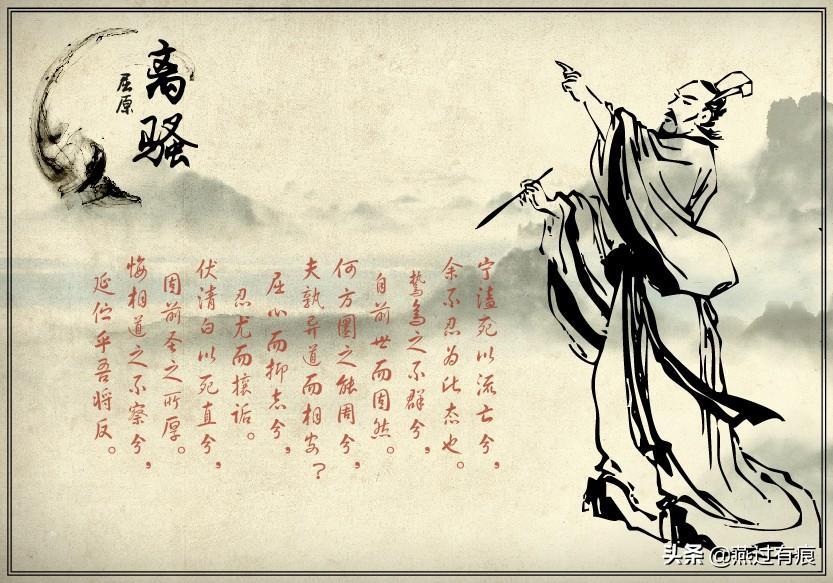 离骚
屈原
宁溘死以流亡兮，
余不忍为此态也。
鸷鸟之不群兮，
自前世而固然。
何方圜之能周兮，
夫孰异道而相安？
屈心而抑志兮，
忍尤而攘诟。
伏清白以死直兮，
固前圣之所厚。
悔相道之不察兮，
延伫乎吾将反。
头条 @燕过有痕